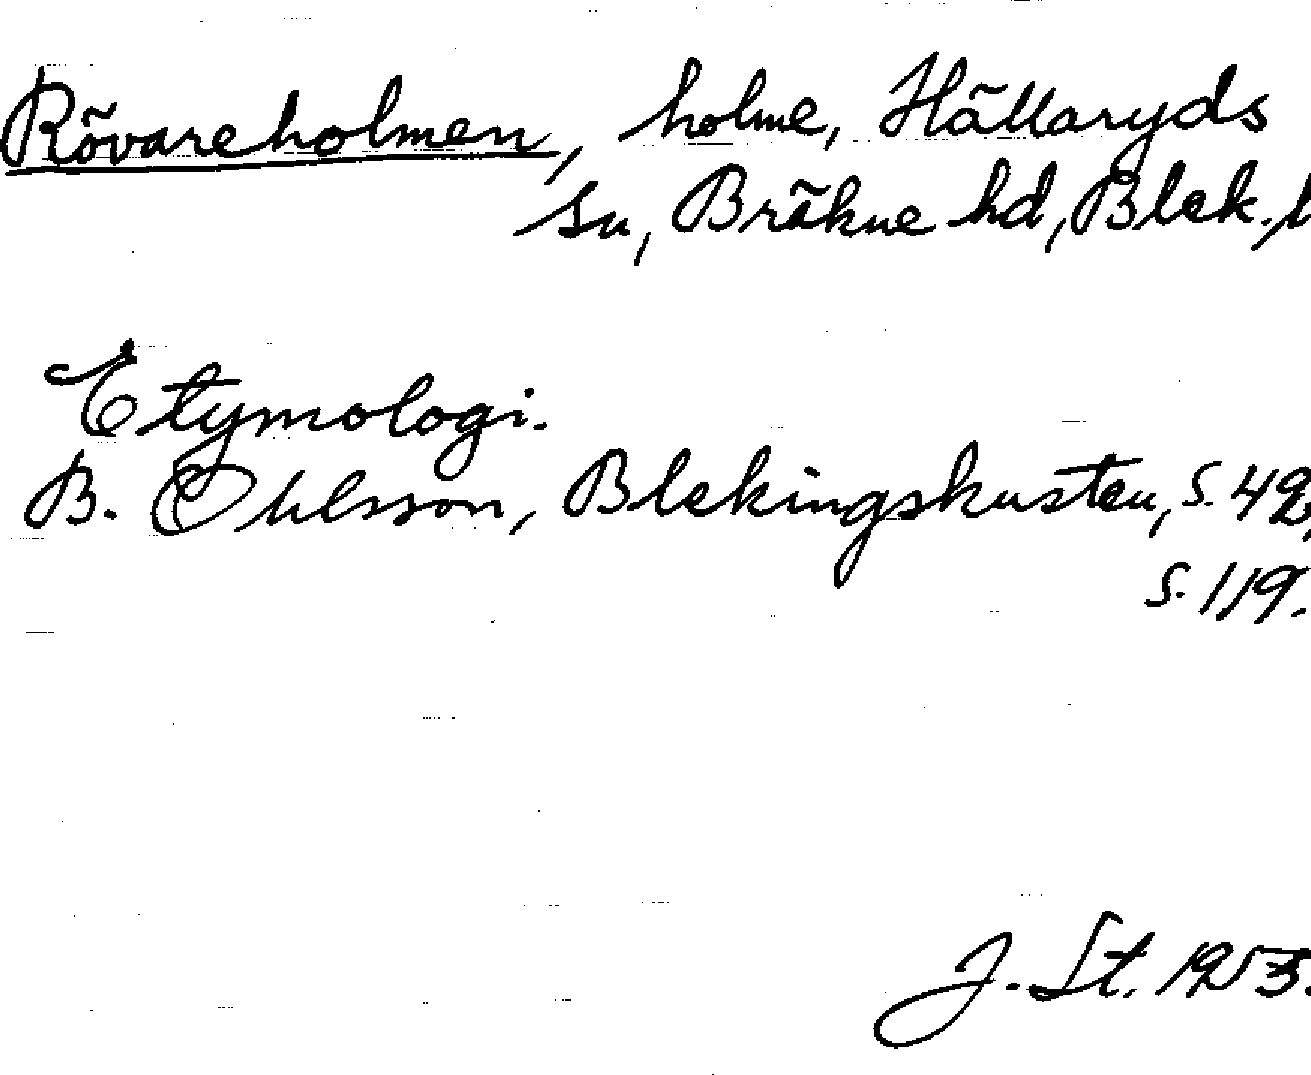 Rövareholmen, holme, Hällaryds
sn, Bräkne hd, Blek. l
Etymologi.
B. Ohlsson, Blekingskusten, s. 42,
s. 119.
J. St. 1953.